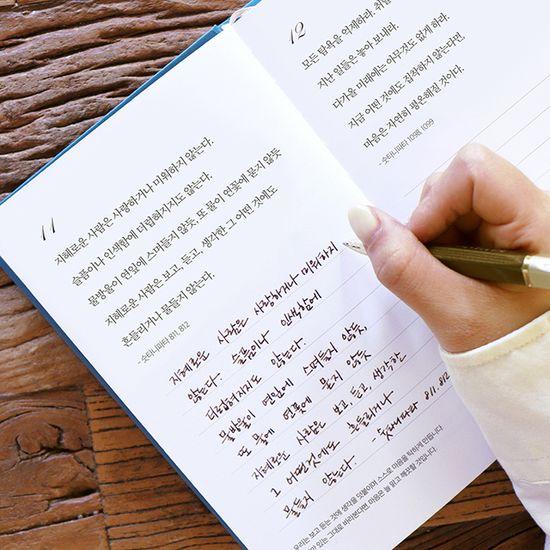 11
지혜로운 사람은 사랑하거나 미워하지 않는다.
슬픔이나 인색함에 더럽혀지지도 않는다.
물방울이 연잎에 스며들지 않듯, 또 물이 연꽃에 묻지 않듯
지혜로운 사람은 보고, 듣고, 생각한 그 어떤 것에도
흔들리거나 물들지 않는다.
- 숫타니파타 811, 812
지혜로운 사람은 사랑하거나 미워하지
않는다. 슬픔이나 인색함에
더럽혀지지도 않는다.
물방울이 연잎에 스며들지 않듯,
또 물에 연꽃에 묻지 않듯
지혜로운 사람은 보고, 듣고, 생각한
그 어떤것에도 흔들리거나
물들지 않는다. - 숫타니파타 811. 812
우리는 보고 듣는 것에 생각을 덧붙이며 스스로 마음을 탁하게 만듭니다
있는 그대로 바라본다면, 마음은 늘 맑고 깨끗할 것입니다.
12
모든 탐욕을 억제하라.
지난 일들은 놓아 보내라.
다가올 미래에는 아무것도 없게 하라.
지금 어떤 것에도 집착하지 않는다면,
마음은 자연히 평온해질 것이다.
- 숫타니파타 1098, 1099